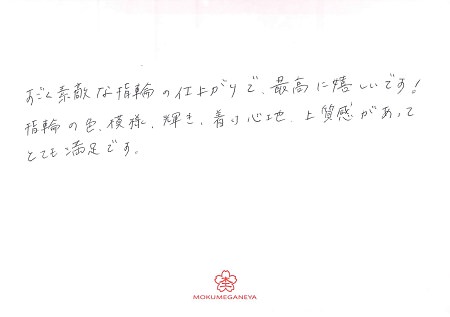 すごく素敵な指輪の仕上がりで、最高に嬉しいです!
指輪の色、模様、輝き、着け心地、上質感があって
とても満足です。
MOKUMEGANEYA